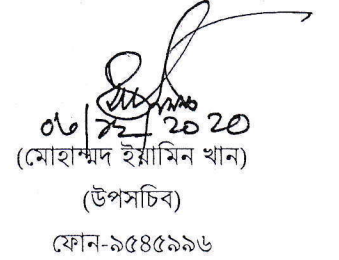 ০৬/১২/2020
(মোহাম্মদ ইয়ামিন খান)
(উপসচিব)
ফোন-৯৫৪৫৯৯৬